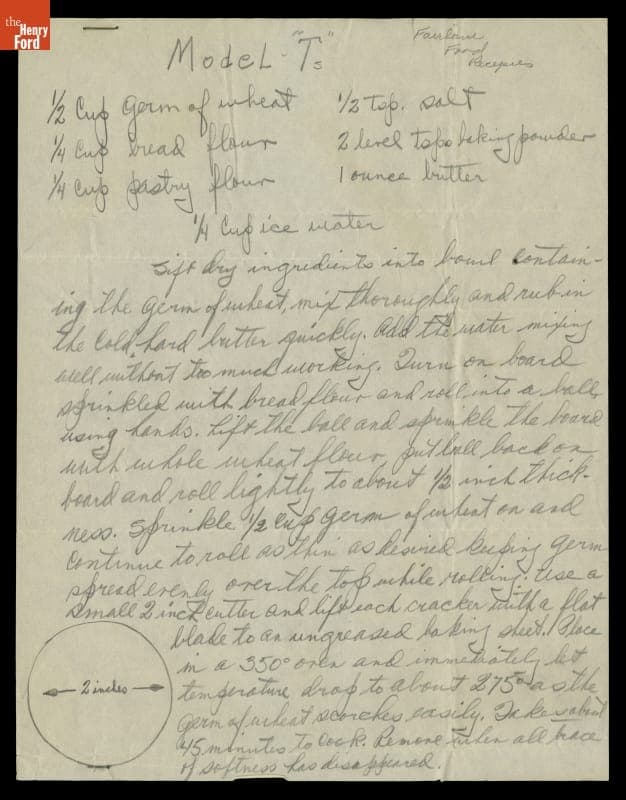 the
Henry
Ford
Model "T"s
Fairlane
Food
Receipes
1/2 Cup Germ of wheat
1/2 tsp. salt
1/4 Cup bread flour
2 level tsps baking powder
1/4 Cup pastry flour
1 ounce butter
1/4 Cup ice water
Sift dry ingredients into bowl contain-
ing the germ of wheat, mix thoroughly and rub in
the cold, hard butter quickly. Add the water mixing
well without too much working. Turn on board
sprinkled with bread flour and roll into a ball,
using hands. Lift the ball and sprinkle the board
with whole wheat flour, put ball back on
board and roll lightly to about 1/2 inch thick-
ness. Sprinkle 1/2 Cup germ of wheat on and
continue to roll as thin as desired keeping germ
spread evenly over the top while rolling. Use a
small 2 inch cutter and lift each cracker with a flat
blade to an ungreased baking sheet. Place
in a 350° oven and immediately let
temperature drop to about 275° as the
germ of wheat scorches easily. Takes about
45 minutes to cook. Remove when all trace
of softness has disappeared.
2 inches